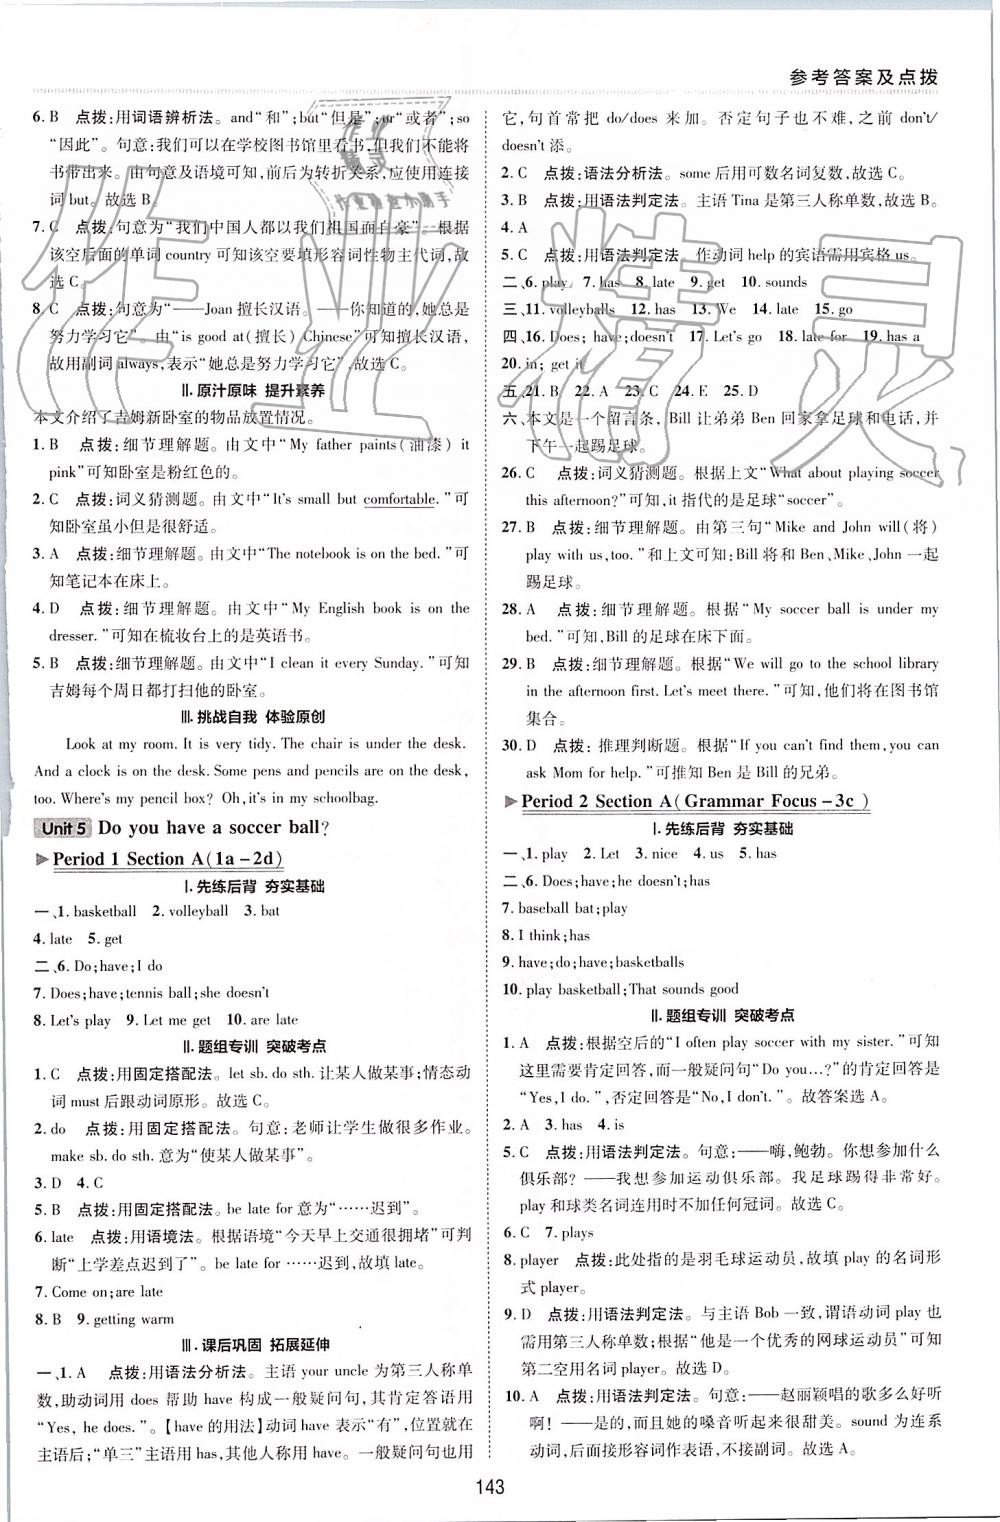 参考答案及点拨
6. B 点拨:用词语辨析法。and“和”;but“但是”;or“或者”;so
“因此”。句意:我们可以在学校图书馆里看书,但我们不能将
书带出来。由句意及语境可知,前后为转折关系,应使用连接
词but。故选B。
7. C 点拨:句意为“我们中国人都以我们祖国而自豪”。根据
该空后面的单词 country 可知该空要填形容词性物主代词,故
选C。
8. C 点拨:句意为“——Joan 擅长汉语。——你知道的,她总是
努力学习它”。由“is good at(擅长) Chinese”可知擅长汉语,
故用副词always,表示“她总是努力学习它”,故选C。
Ⅱ. 原汁原味 提升素养
本文介绍了吉姆新卧室的物品放置情况。
1. B 点拨:细节理解题。由文中“My father paints(油漆) it
pink”可知卧室是粉红色的。
2. C 点拨:词义猜测题。由文中“It's small but comfortable.”可
知卧室虽小但是很舒适。
3. A 点拨:细节理解题。由文中“The notebook is on the bed.”可
知笔记本在床上。
4. D 点拨:细节理解题。由文中“My English book is on the
dresser.”可知在梳妆台上的是英语书。
5. B 点拨:细节理解题。由文中“I clean it every Sunday.”可知
吉姆每个周日都打扫他的卧室。
Ⅲ. 挑战自我 体验原创
Look at my room. It is very tidy. The chair is under the desk.
And a clock is on the desk. Some pens and pencils are on the desk,
too. Where's my pencil box? Oh,it's in my schoolbag.
Unit 5 Do you have a soccer ball?
Period 1 Section A(1a-2d)
Ⅰ. 先练后背 夯实基础
一、1. basketball 2. volleyball 3. bat
4. late 5. get
二、6. Do;have;I do
7. Does;have;tennis ball;she doesn't
8. Let's play 9. Let me get 10. are late
Ⅱ. 题组专训 突破考点
1. C 点拨:用固定搭配法。let sb. do sth. 让某人做某事;情态动
词 must 后跟动词原形。故选 C。
2. do 点拨:用固定搭配法。句意:老师让学生做很多作业。
make sb. do sth. 意为“使某人做某事”。
3. D 4. C
5. B 点拨:用固定搭配法。be late for 意为“……迟到”。
6. late 点拨:用语境法。根据语境“今天早上交通很拥堵”可判
断“上学差点迟到了”。be late for ……迟到,故填 late。
7. Come on;are late
8. B 9. getting warm
Ⅲ. 课后巩固 拓展延伸
一、1. A 点拨:用语法分析法。主语 your uncle 为第三人称单
数,助动词用 does 帮助 have 构成一般疑问句,其肯定答语用
“Yes, he does.”。【have 的用法】动词 have 表示“有”,位置就在
主语后;“单三”主语用 has,其他人称用 have。一般疑问句也用
它,句首常把 do/does 来加。否定句子也不难,之前 don't/
doesn't 添。
2. C 点拨:语法分析法。some 后用可数名词复数,故选 C。
3. B 点拨:用语法判定法。主语 Tina 是第三人称单数,故选 B。
4. A
5. C 点拨:用语法判定法。作动词 help 的宾语需用宾格 us。
二、6. play 7. has 8. late 9. get 10. sounds
三、11. volleyballs 12. has 13. We 14. late 15. go
四、16. Does; have;doesn't 17. Let's go 18. late for 19. has a
20. in; get it
五、21. B 22. A 23. C 24. E 25. D
六、本文是一个留言条,Bill 让弟弟 Ben 回家拿足球和电话,并
下午一起踢足球。
26. C 点拨:词义猜测题。根据上文“What about playing soccer
this afternoon?”可知,it 指代的是足球“soccer”。
27. B 点拨:细节理解题。由第三句“Mike and John will(将)
play with us,too.”和上文可知:Bill 将和 Ben、Mike、John 一起
踢足球。
28. A 点拨:细节理解题。根据“My soccer ball is under my
bed.”可知,Bill 的足球在床下面。
29. B 点拨:细节理解题。根据“We will go to the school library
in the afternoon first. Let's meet there.”可知,他们将在图书馆
集合。
30. D 点拨:推理判断题。根据“If you can't find them,you can
ask Mom for help.”可推知 Ben 是 Bill 的兄弟。
Period 2 Section A(Grammar Focus-3c)
Ⅰ. 先练后背 夯实基础
一、1. play 2. Let 3. nice 4. us 5. has
二、6. Does;have;he doesn't;has
7. baseball bat;play
8. I think;has
9. have;do;have;basketballs
10. play basketball;That sounds good
Ⅱ. 题组专训 突破考点
1. A 点拨:根据空后的“I often play soccer with my sister.”可知
这里需要肯定回答,而一般疑问句“Do you...?”的肯定回答是
“Yes,I do.”,否定回答是“No,I don't.”。故答案选 A。
2. A 3. has 4. is
5. C 点拨:用语法判定法。句意:——嗨,鲍勃。你想参加什么
俱乐部?——我想参加运动俱乐部。我足球踢得非常好。
play 和球类名词连用时不加任何冠词。故选 C。
6. C 7. plays
8. player 点拨:此处指的是羽毛球运动员,故填 play 的名词形
式 player。
9. D 点拨:用语法判定法。与主语 Bob 一致,谓语动词 play 也
需用第三人称单数;根据“他是一个优秀的网球运动员”可知
第二空用名词 player。故选 D。
10. A 点拨:用语法判定法。句意:——赵丽颖唱的歌多么好听
啊!——是的,而且她的嗓音听起来很甜美。sound 为连系
动词,后面接形容词作表语,不接副词。故选 A。
143